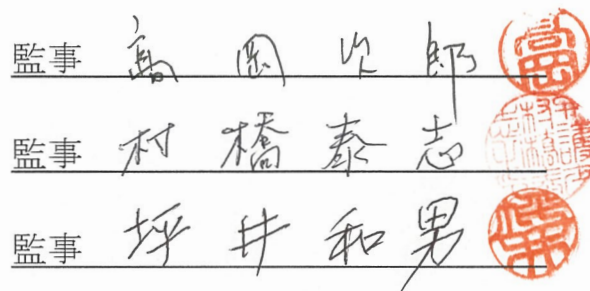 監事 高岡次郎
監事 村橋泰志
監事 坪井和男